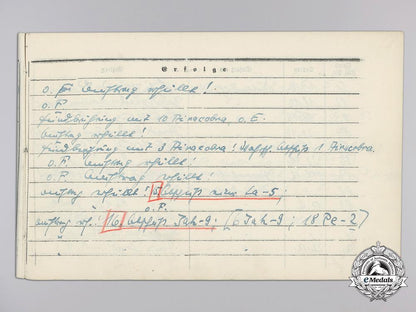 Erfolge
o. F. Auftrag erfüllt!
o. F.
Feindberührung mit 10 Airacobra o. E.
Auftrag erfüllt!
Feindberührung mit 3 Airacobra! Abschuß 1 Airacobra.
o. F. Auftrag erfüllt!
o. F. Auftrag erfüllt!
Auftrag erfüllt! Abschuß einer La-5;
F.
Auftrag erf.! Abschuß Jak-9; Jak-9; 18 Pe-2)
eMedals